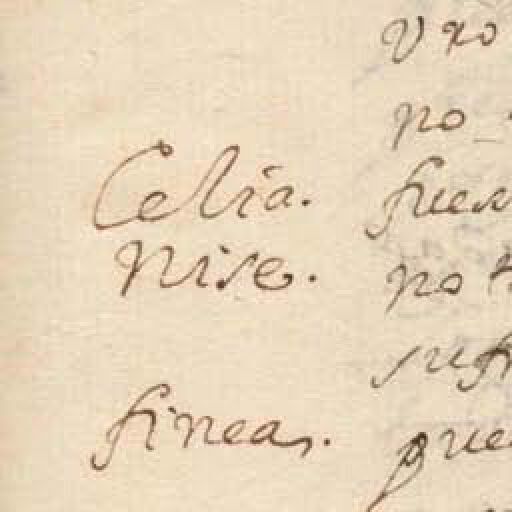 vro
no
Celia. fuer
Nise. no
sufr
finea. que